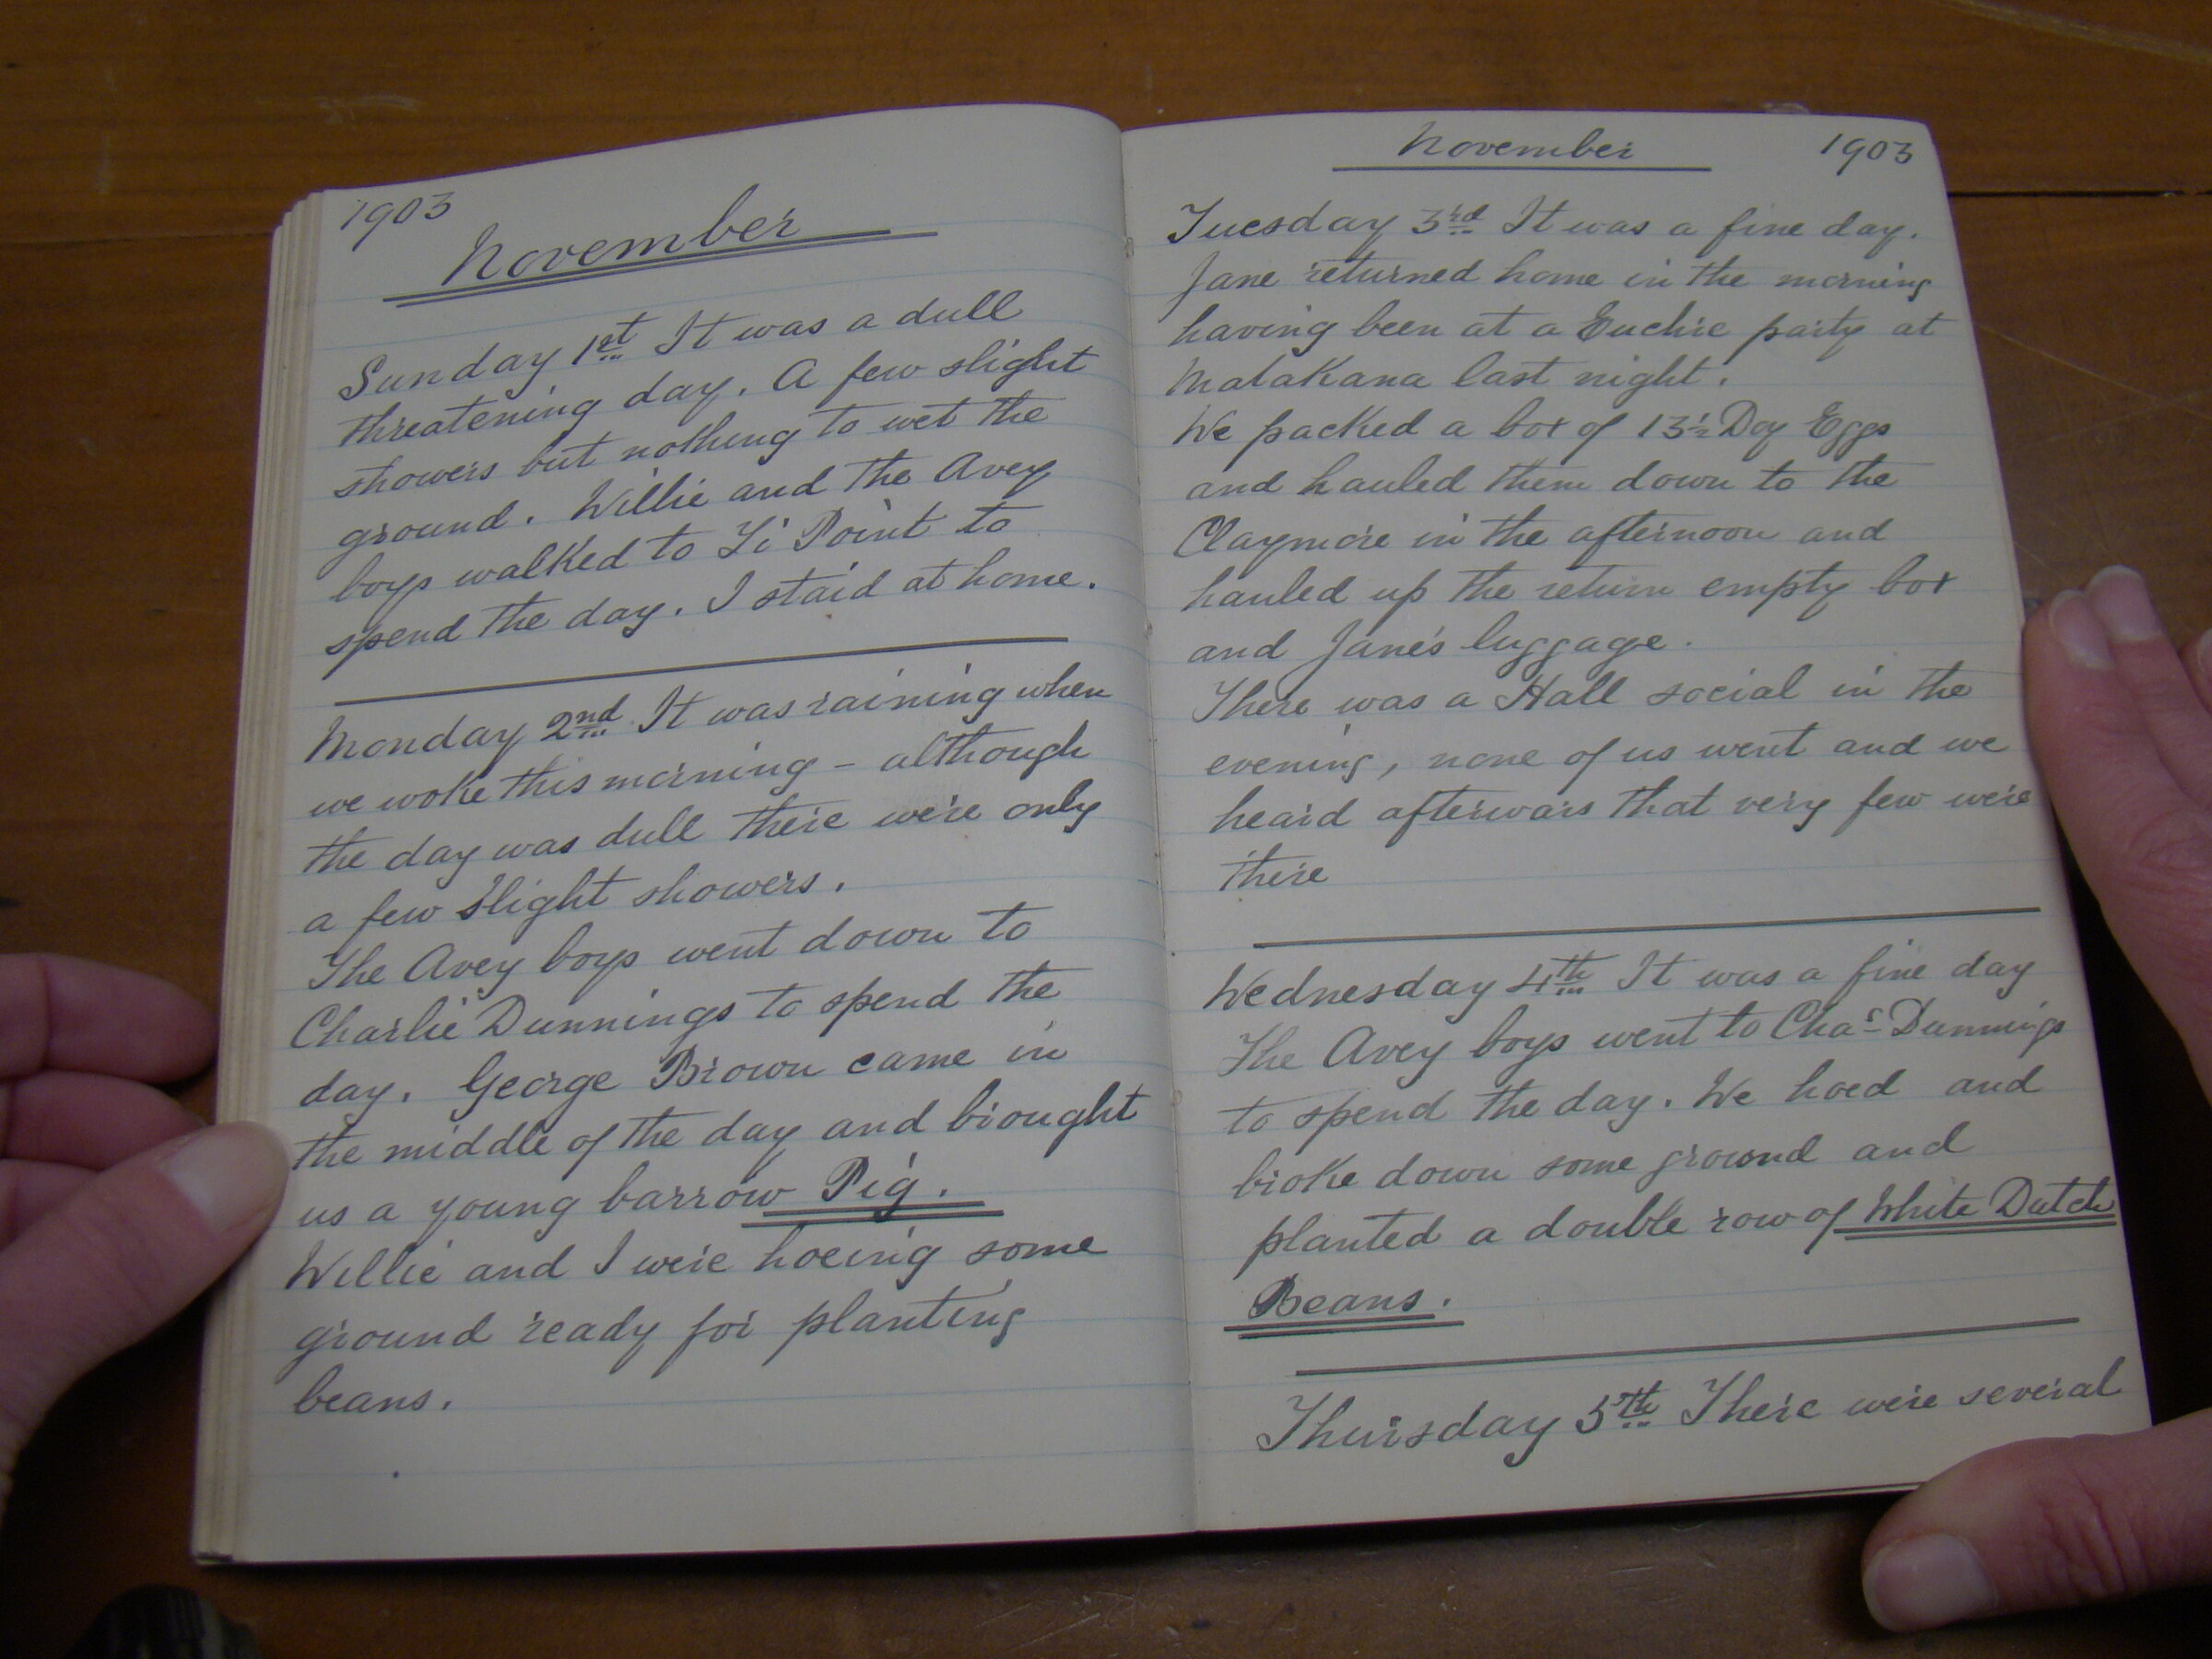 1903
November
Sunday 1st It was a dull
threatening day. A few slight
showers but nothing to wet the
ground. Willie and the Avey
boys walked to Ti Point to
spend the day. I staid at home.
Monday 2nd It was raining when
we woke this morning - although
the day was dull there were only
a few slight showers.
The Avey boys went down to
Charlie Dunnings to spend the
day. George Brown came in
the middle of the day and brought
us a young barrow Pig.
Willie and I were hoeing some
ground ready for planting
beans.
November 1903
Tuesday 3rd It was a fine day.
Jane returned home in the morning
having been at a Euchre party at
Matakana last night.
We packed a box of 13½ Doz Eggs
and hauled them down to the
Claymore in the afternoon and
hauled up the return empty box
and Jane's luggage.
There was a Hall social in the
evening, none of us went and we
heard afterwars that very few were
there
Wednesday 4th It was a fine day
The Avey boys went to Chas Dunnings
to spend the day. We hoed and
broke down some ground and
planted a double row of White Dutch
Beans.
Thursday 5th There were several